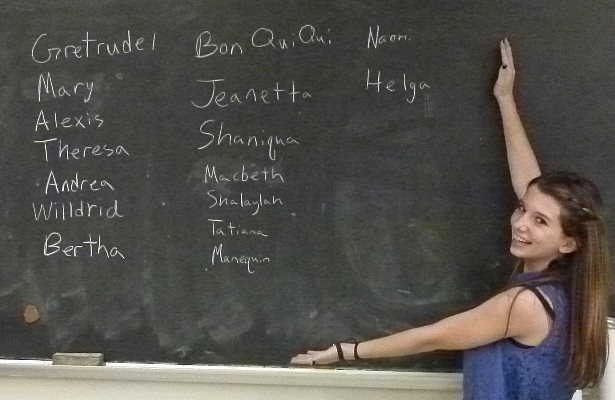 Gretrudel
Mary
Alexis
Theresa
Andrea
Willdrid
Bertha
Bon QuiQui
Jeanetta
Shaniqua
Macbeth
Shalaylah
Tatiana
Manequin
Naomi
Helga